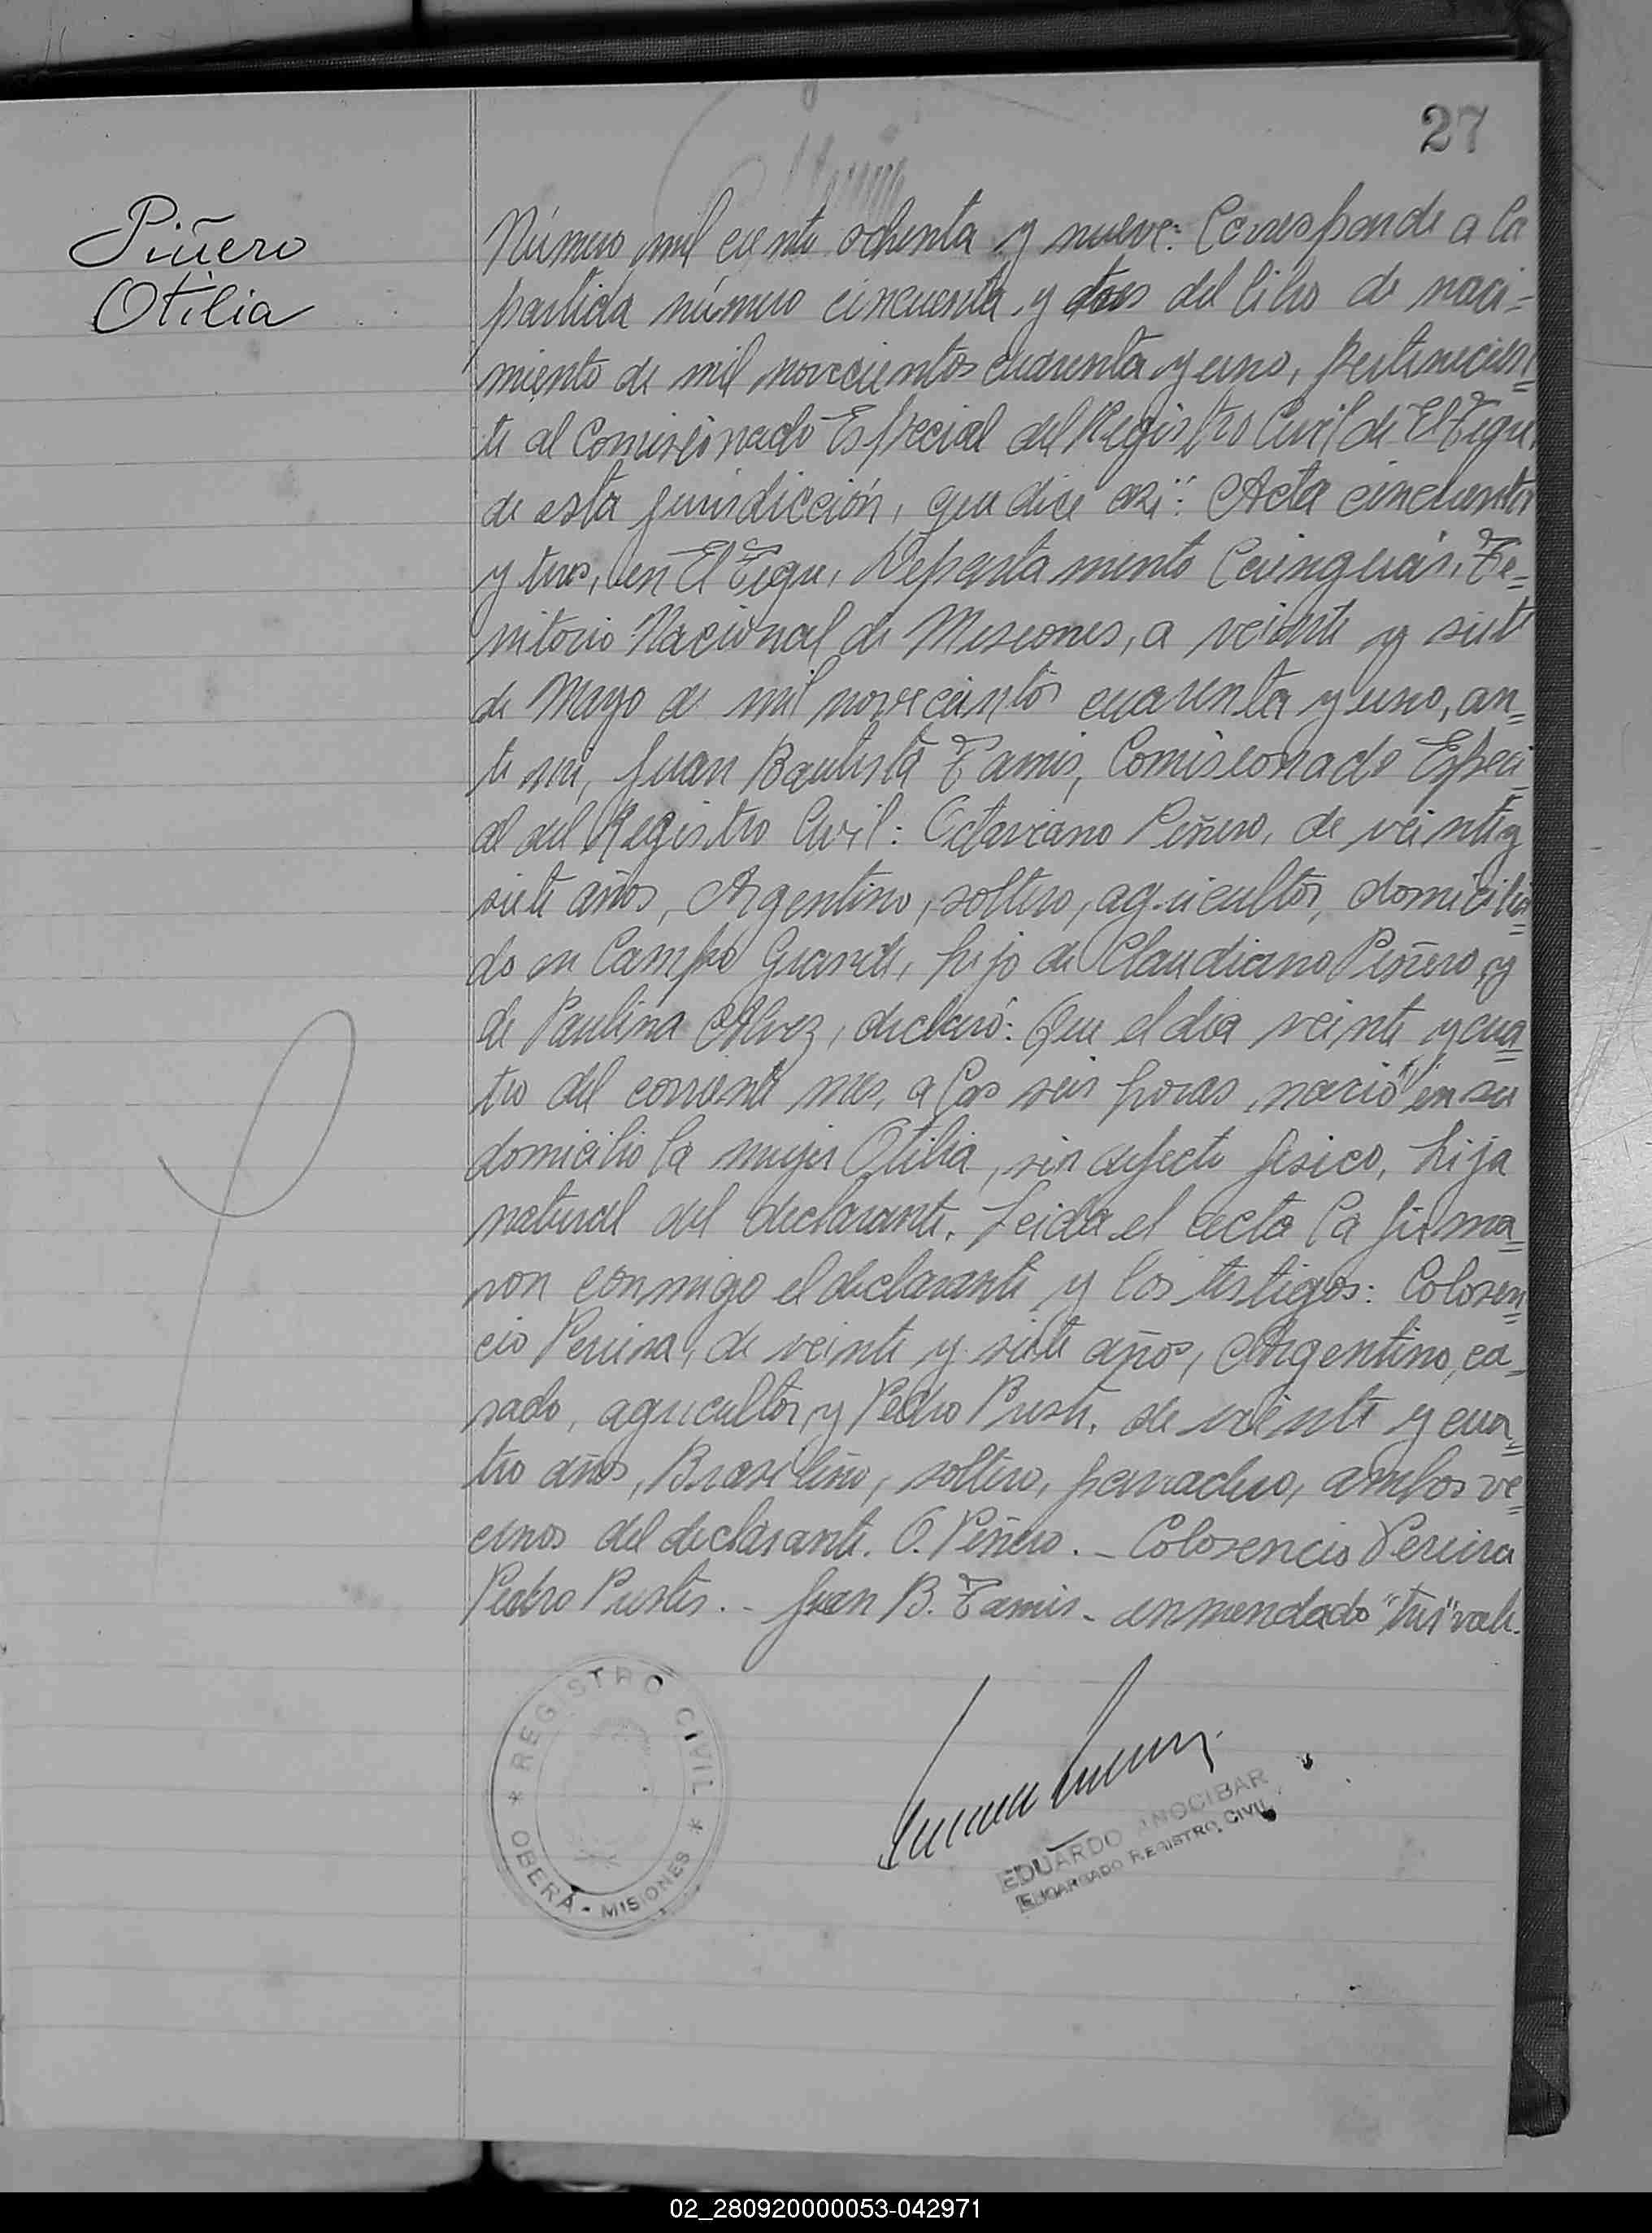 27
Piñero
Otilia
Número mil ciento ochenta y nueve: Corresponde a la
partida número cincuenta y tres del libro de naci=
miento de mil novecientos cuarenta y uno, pertenecien=
te al Comisionado Especial del Registro Civil de El Tigre,
de esta jurisdicción, que dice así: Acta cincuenta
y tres, en El Tigre, Departamento Cainguás, Te=
rritorio Nacional de Misiones, a veinte y siete
de Mayo de mil novecientos cuarenta y uno, an=
te mí, Juan Bautista Tamis, Comisionado Especi=
al del Registro Civil: Octaviano Piñero, de veinte y
siete años, Argentino, soltero, agricultor, domicilia=
do en Campo Grande, hijo de Claudiano Piñero, y
de Paulina Alvez, declaró: Que el día veinte y cua=
tro del corriente mes, a las seis horas, nació en su
domicilio la mujer Otilia, sin defecto físico, hija
natural del declarante. Leida el acta la firma=
ron conmigo el declarante y los testigos: Colosen=
cio Pereira, de veinte y siete años, Argentino, ca=
sado, agricultor, y Pedro de veinte y cua=
tro años, Brasileño, soltero, ambos ve=
cinos del declarante. O. Piñero. - Colosencio Pereira
Pedro - Juan B. Tamis - enmendado "tres" vale.
* REGISTRO CIVIL *
OBERÁ - MISIONES
EDUARDO ANOCIBAR
ENCARGADO REGISTRO CIVIL
02_280920000053-042971